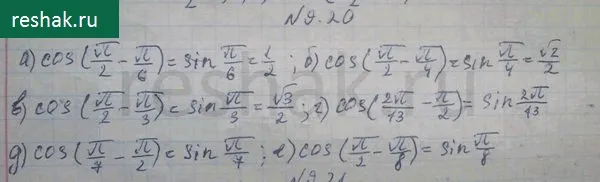 reshak.ru
№9.20
а) cos(π/2 - π/6) = sin π/6 = 1/2 ; б) cos(π/2 - π/4) = sin π/4 = √2/2
в) cos(π/2 - π/3) = sin π/3 = √3/2 ; г) cos(2π/13 - π/2) = sin 2π/13
д) cos(π/7 - π/2) = sin π/7 ; е) cos(π/2 - π/8) = sin π/8